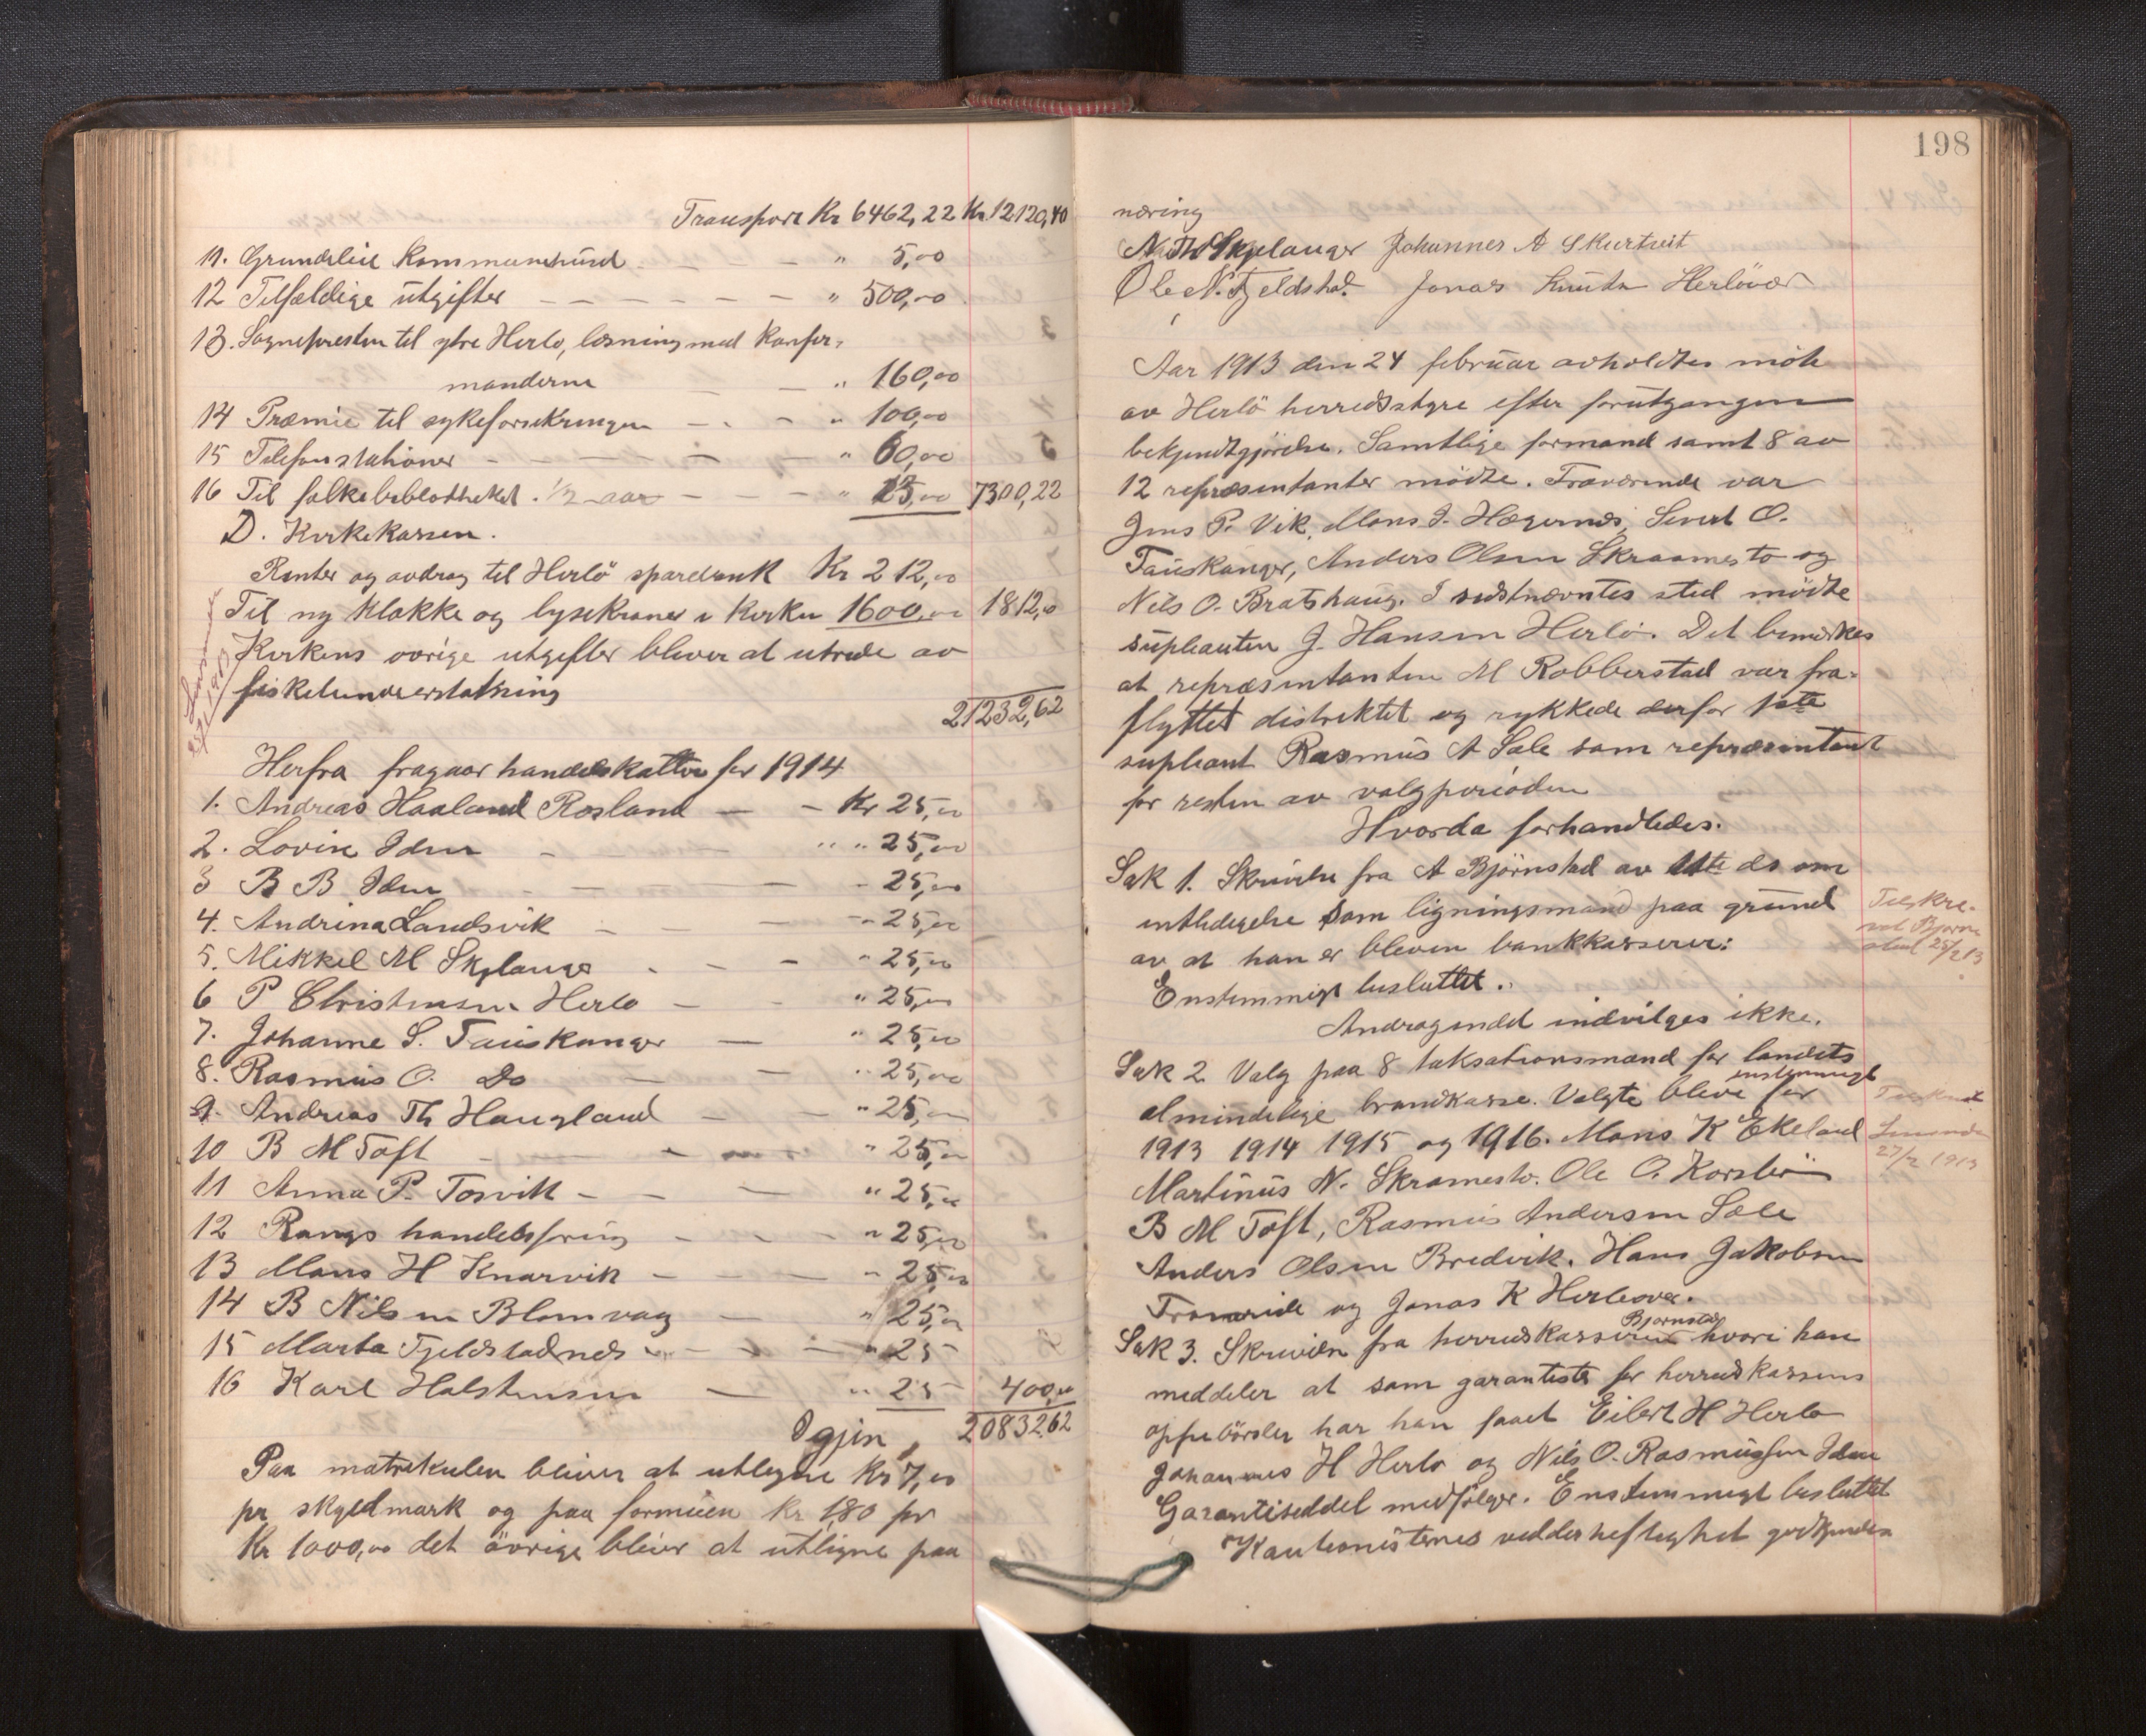 Transport Kr 6462,22 Kr. 12120,40
11. Grundleie Kommunehused - - - " 5,00
12 Tilfældige utgifter - - - - - " 500,00
13. Sognepresten til ytre Herlo, læsning med Konfir-
manderne - - " 160,00
14 Præmie til sykeforsikringen - - - " 100,00
15 Telefonstationer - - - - " 60,00
16 Til folkebibliotheket. 1/2 aar - - - " 15,00 7300,22
D. Kirkekassen.
Renter og avdrag til Herlö sparebank Kr 212,00
Til ny klokke og lysekroner i Kirken 1600,00 1812,00
Kirkens övrige utgifter bliver at utrede av
fiskeliunderstøtning
21232,62
Herfra fragaar handelskatter for 1914
1. Andreas Haaland Rosland - - Kr 25,00
2. Lovise Iden - - " " 25,00
3 B B Iden - - - " 25,00
4. Andrina Landsvik - - - " 25,00
5. Mikkel M Skjelanger - - - " 25,00
6 P Christensen Herlo - - " 25,00
7. Johanne S. Tauskanger - " 25,00
8. Rasmus O. Do - - " 25,00
9. Andreas Th Haugland - - " 25,00
10 B M Toft - - - " 25,00
11 Anna P. Torvik - - - " 25,00
12 Rongs handelsforening - - - " 25,00
13 Mons H Knarvik - - - " 25,00
14 B Nilsen Blomvaag - - " 25,00
15 Marta Fjeldstadnes - - - " 25
16 Karl Halstensen - " 25 400,00
Igjen, 20832,62
Paa matrikulen bliver at utlegne Kr 7,00
pr skyldmark og paa formuen kr 1,80 pr
Kr 1000,00 det övrige bliver at utligne paa
198
næring
N. Th Skjelanger Johannes A Skurtveit
Ole N. Fjeldstad. Jonas Knuts Herlövær
Aar 1913 den 24 februar avholdtes möte
av Herlö herredsstyre efter forutgangen
bekjendtgjörelse. Samtlige formænd samt 8 av
12 repræsentanter mödte. Fraværende var
Jens P. Vik, Mons J. Hægernes, Sivert O.
Tauskanger, Anders Olsen Skraamesto og
Nils O. Bratshaug. I sidstnævntes sted mödte
supleanten J. Hansen Herlö. Det bemerkes
at repræsentanten M Robberstad var fra-
flyttet distriktet og rykkede derfor 1ste
supleant Rasmus A Sæle som repræsentant
for resten av valgperioden
Hvorda forhandledes.
Sak 1. Skrivelse fra A Björnstad av 11te ds om
entledigelse som ligningsmand paa grund
av at han er bleven bankkasserer:
Enstemmigt besluttet.
Andragendet indvilges ikke.
Tilskre-
vet Bjørn-
stad 25/2 13
Sak 2. Valg paa 8 taksationsmænd for landets
almindelige brandkasse. Valgte bleve enstemmigt for
1913 1914 1915 og 1916. Mons K Ekeland
Martinus N. Skramesto. Ole O. Korslö
B M Toft, Rasmus Andersen Sæle
Anders Olsen Bredvik. Hans Jakobsen
Tromereide og Jonas K Herlövær.
27/2 1913
Sak 3. Skrivelse fra herredskassereren Bjørnstad hvori han
meddeler at som garantister for herredskassens
oppebörsler har han faaet Eilert H Herlo
Johannes H Herlo og Nils O. Rasmussen Iden
Garantiseddel medfölger. Enstemmigt besluttet
Kautionisternes vederheftighet godkjendes